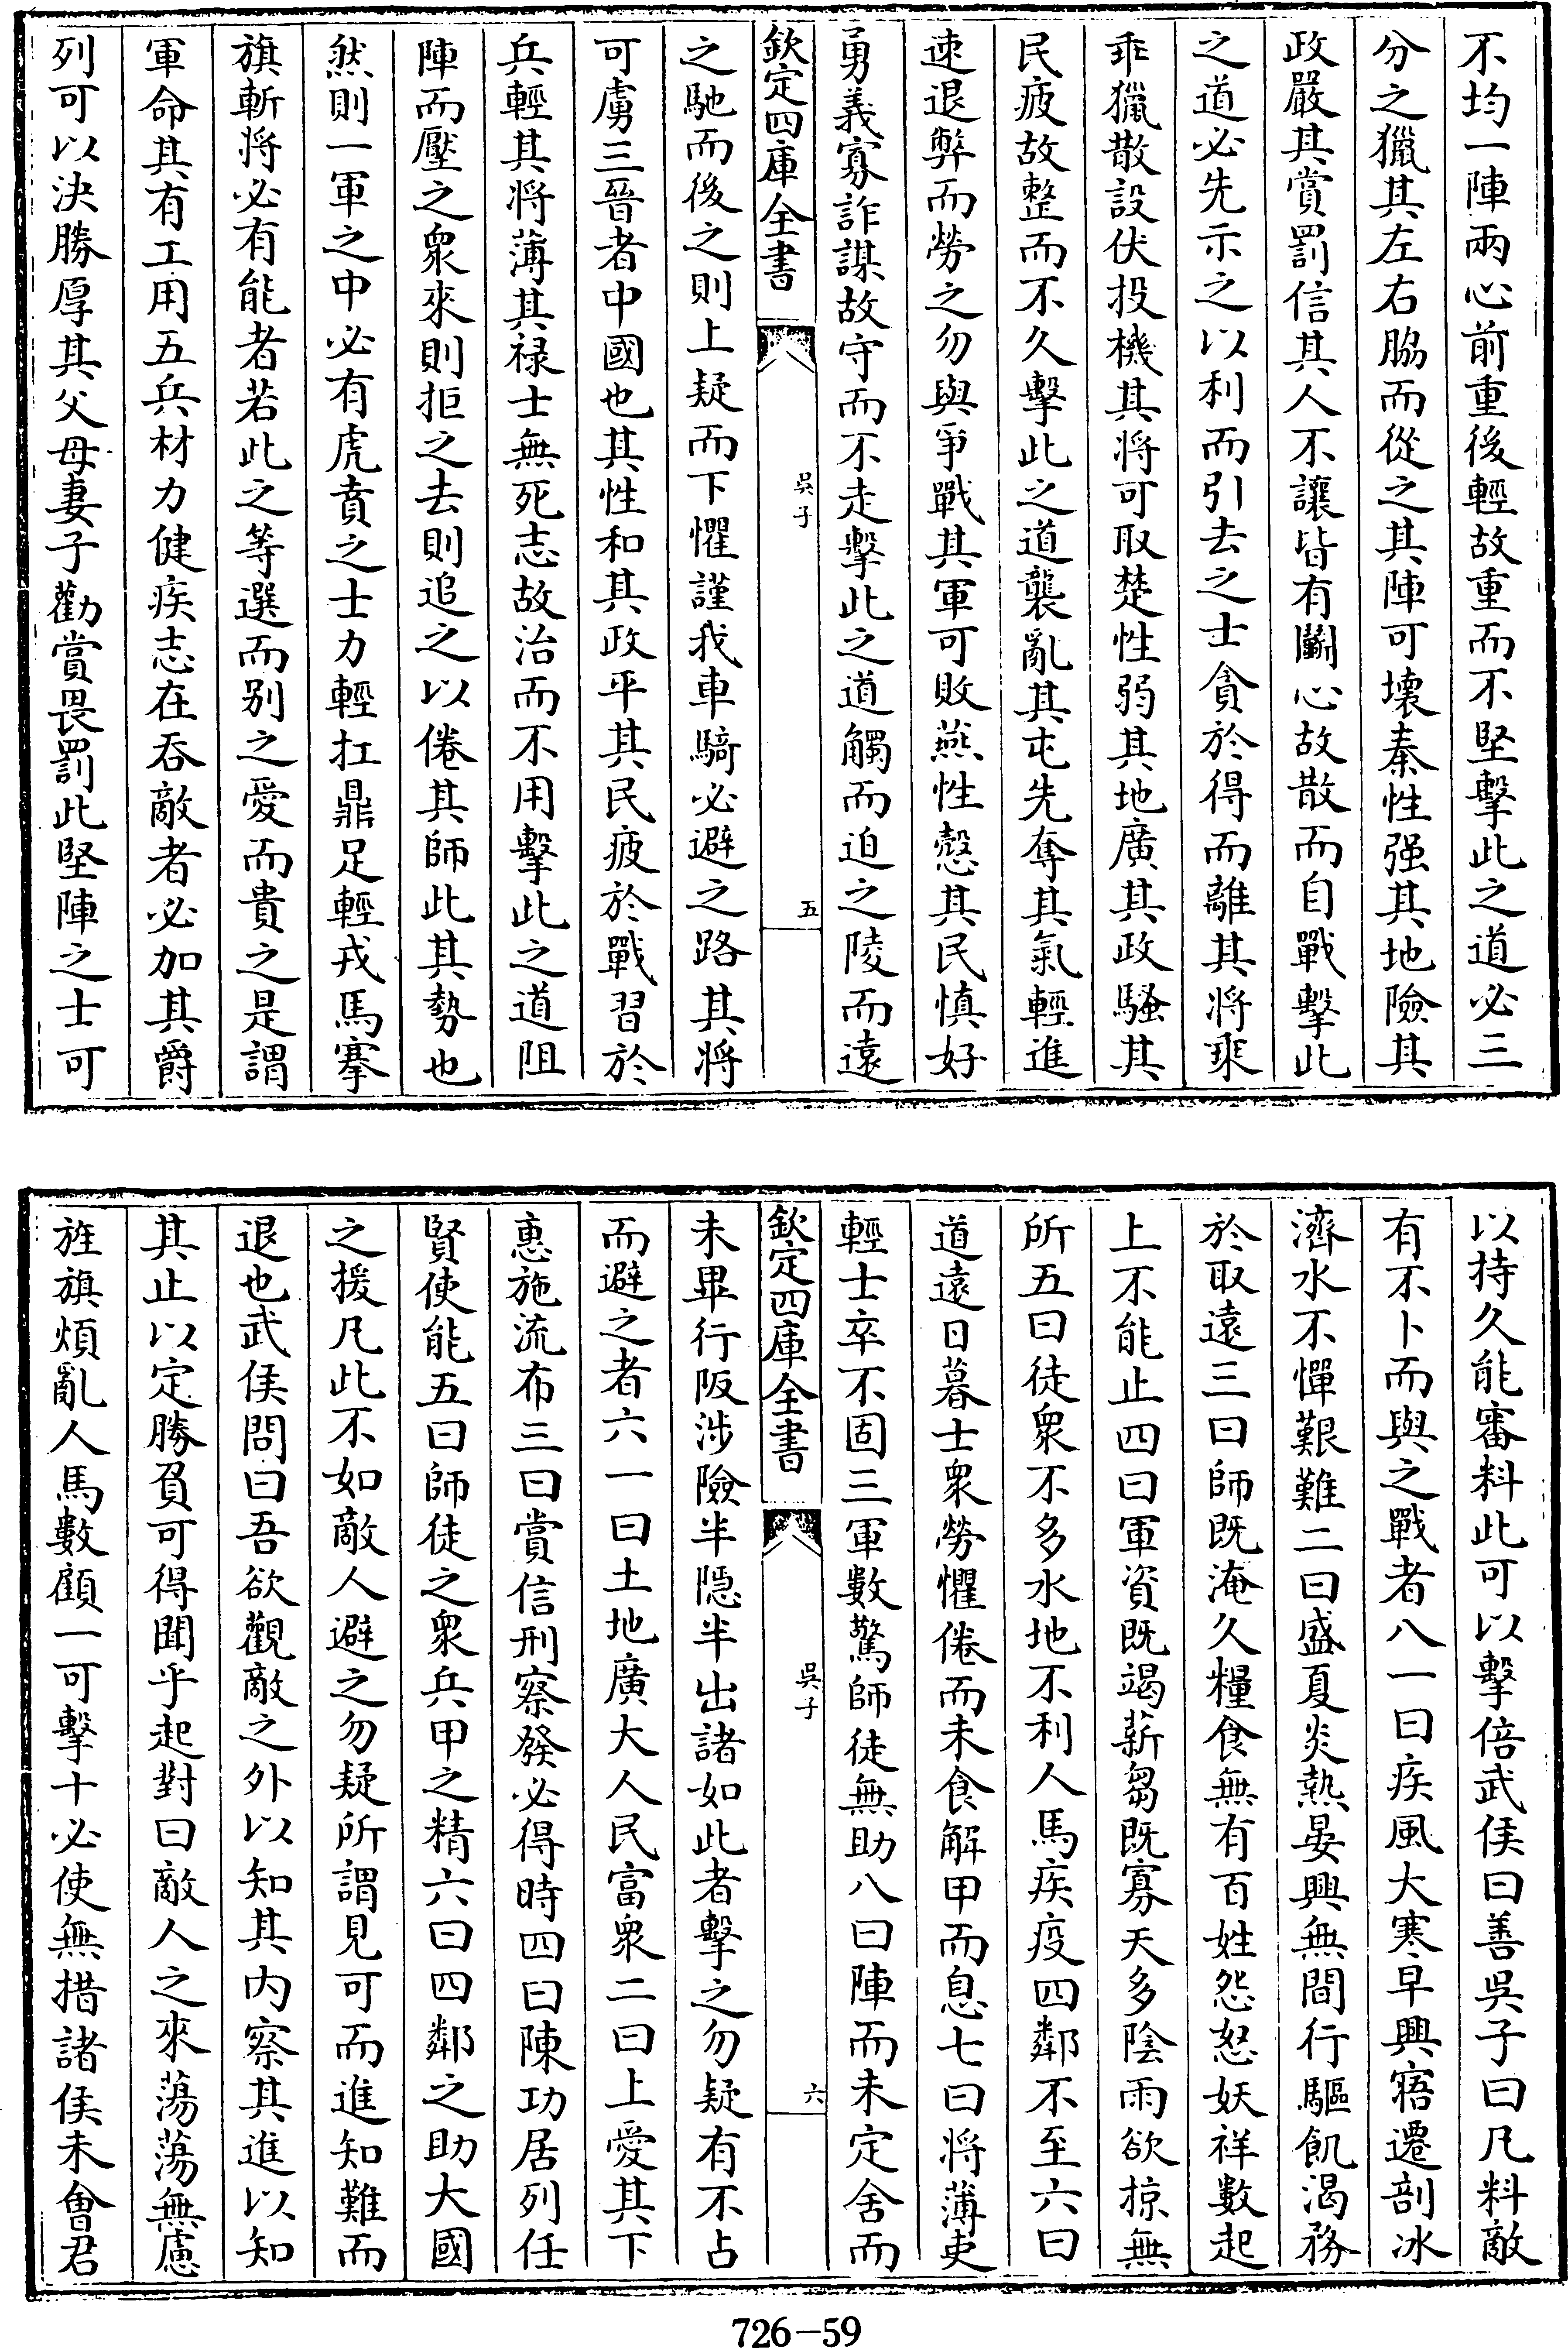 不均一陣兩心前重後輕故重而不堅擊此之道必三
分之獵其左右脇而從之其陣可壞秦性强其地險其
政嚴其賞罰信其人不讓皆有鬭心故散而自戰擊此
之道必先示之以利而引去之士貪於得而離其将乘
乖獵散設伏投機其将可取楚性弱其地廣其政騷其
民疲故整而不久擊此之道襲亂其屯先奪其氣輕進
速退弊而勞之勿與爭戰其軍可敗燕性慤其民慎好
勇義寡詐謀故守而不走擊此之道觸而迫之陵而遠
欽定四庫全書 吳子 五
之馳而後之則上疑而下懼謹我車騎必避之路其将
可虜三晉者中國也其性和其政平其民疲於戰習於
兵輕其将薄其禄士無死志故治而不用擊此之道阻
陣而壓之衆來則拒之去則追之以倦其師此其勢也
然則一軍之中必有虎賁之士力輕扛鼎足輕戎馬搴
旗斬将必有能者若此之等選而别之愛而貴之是謂
軍命其有工用五兵材力健疾志在吞敵者必加其爵
列可以決勝厚其父母妻子勸賞畏罰此堅陣之士可
以持久能審料此可以擊倍武侯曰善吳子曰凡料敵
有不卜而與之戰者八一曰疾風大寒早興寤遷剖冰
濟水不憚艱難二曰盛夏炎熱晏興無間行驅飢渴務
於取遠三曰師既淹久糧食無有百姓怨怒妖祥數起
上不能止四曰軍資既竭薪芻既寡天多陰雨欲掠無
所五曰徒衆不多水地不利人馬疾疫四鄰不至六曰
道遠日暮士衆勞懼倦而未食解甲而息七曰将薄吏
輕士卒不固三軍數驚師徒無助八曰陣而未定舍而
欽定四庫全書 吳子 六
未畢行阪涉險半隱半出諸如此者擊之勿疑有不占
而避之者六一曰土地廣大人民富衆二曰上愛其下
惠施流布三曰賞信刑察發必得時四曰陳功居列任
賢使能五曰師徒之衆兵甲之精六曰四鄰之助大國
之援凡此不如敵人避之勿疑所謂見可而進知難而
退也武侯問曰吾欲觀敵之外以知其内察其進以知
其止以定勝負可得聞乎起對曰敵人之來蕩蕩無慮
旌旗煩亂人馬數顧一可擊十必使無措諸侯未會君
726-59